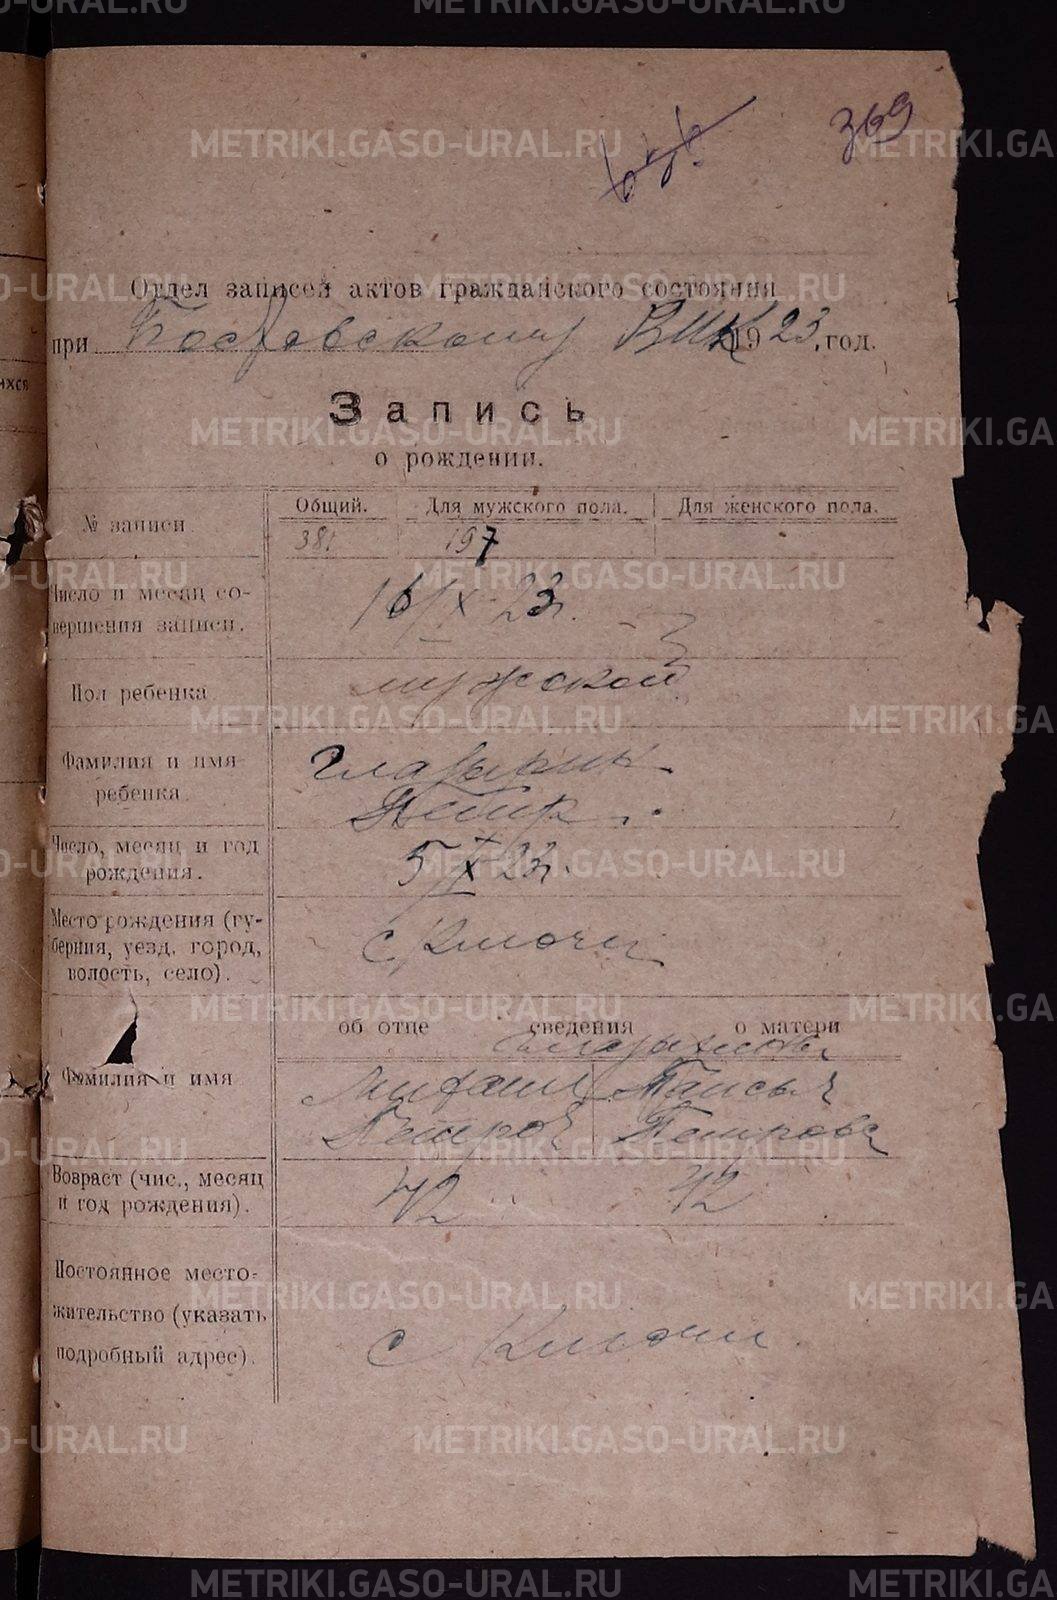 369
Отдел записей актов гражданского состояния
при ВИК 1923, год.
Запись
о рождении.
№ записи.
Общий. Для мужского пола. Для женского пола.
381 197
Число и месяц со-
вершения записи.
16/IX-23г.
Пол ребенка
мужской
Фамилия и имя
ребенка
Глазырин
Петр
Число, месяц и год
рождения.
5/IX 23г.
Место рождения (гу-
берния, уезд, город,
волость, село).
с. Ключи
об отце сведения о матери
Глазырины
Фамилия и имя
Михаил Таисья
Петров Петровна
Возраст (чис., месяц
и год рождения).
42 42
Постоянное место-
жительство (указать
подробный адрес).
с Ключи
METRIKI.GASO-URAL.RU